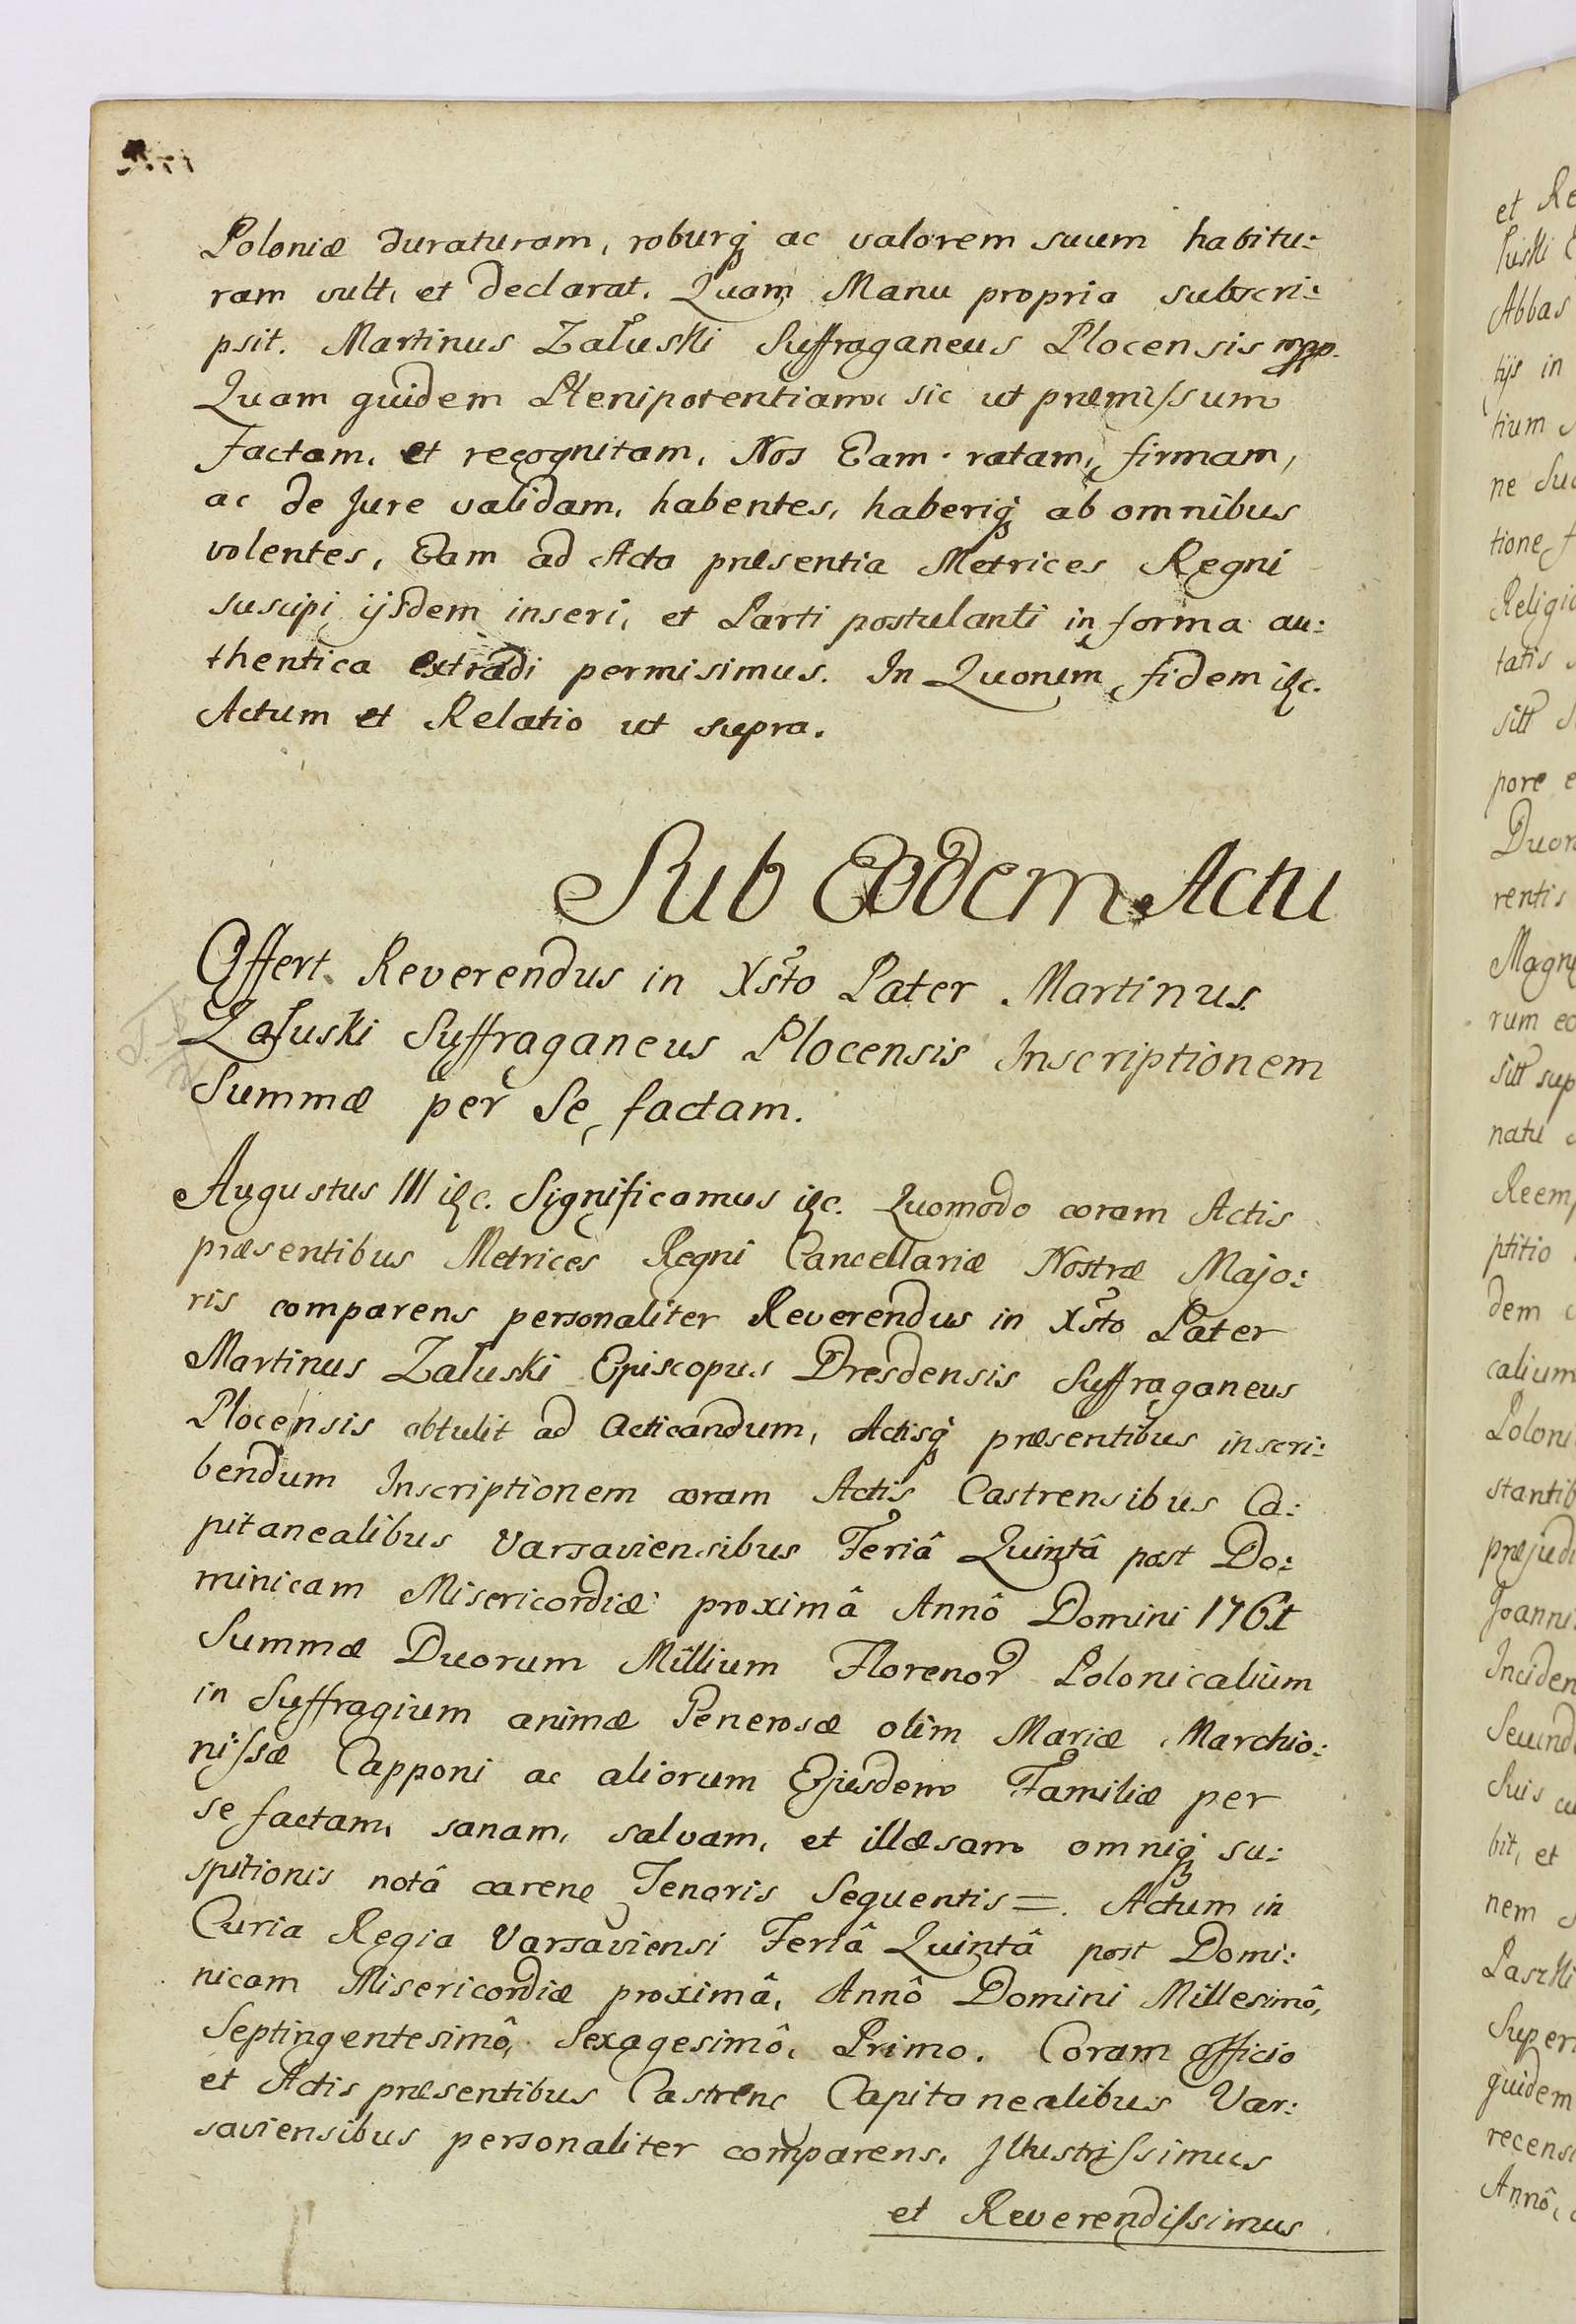 Poloniæ duraturam, roburq́ ac valorem suum habitu:
ram vult, et declarat. Quam Manu propria subscri:
psit. Martinus Załuski Suffraganeus Plocensis mpp.
Quam quidem Plenipotentiam sic ut præmissum
factam, et recognitam, Nos Eam ratam, firmam,
ac de Jure validam, habentes, haberiq́ ab omnibus
volentes, Eam ad Acta præsentia Metrices Regni
suscipi ijsdem inseri, et Parti postulanti in forma au:
thentica extradi permisimus. In Quorum fidem &c.
Actum et Relatio ut supra.
Sub Eodem Actu
Offert Reverendus in Xsto Pater Martinus
Załuski Suffraganeus Plocensis Inscriptionem
Summæ per Se factam.
Augustus III &c. Significamus &c. Quomodo coram Actis
præsentibus Metrices Regni Cancellariæ Nostræ Majo:
ris comparens personaliter Reverendus in Xsto Pater
Martinus Załuski Episcopus Dresdensis Suffraganeus
Plocensis obtulit ad acticandum, Actisq́ præsentibus inscri:
bendum Inscriptionem coram Actis Castrensibus Ca:
pitanealibus Varsaviensibus Feriâ Quintâ post Do:
minicam Misericordiæ proximâ Annô Domini 1761
Summæ Duorum Millium Florenor Polonicalium
in Suffragium animæ Generosæ olim Mariæ Marchio:
nissæ Capponi ac aliorum Ejusdem Familiæ per
se factam, sanam, salvam, et illæsam omniq́ su:
spitionis notâ caren Tenoris Sequentis =. Actum in
Curia Regia Varsaviensi Feriâ Quintâ post Domi:
nicam Misericordiæ proximâ, Annô Domini Millesimô,
Septingentesimô, Sexagesimô, Primo. Coram officio
et Actis præsentibus Castren Capitanealibus Var:
saviensibus personaliter comparens, Illustrissimus
et Reverendissimus
et Re
Abbas
tijs in
tium
ne Su
tione f
Religio
tatis
sitt
pore e
Duor
rentis
Magn
rum eo
sitt sup
natu
Reem
ptitio
dem
calium
Poloni
stantib
præjudi
Joanni
Inciden
Secund
Suis
bit, et
nem
Super
quidem
recens
Annô,